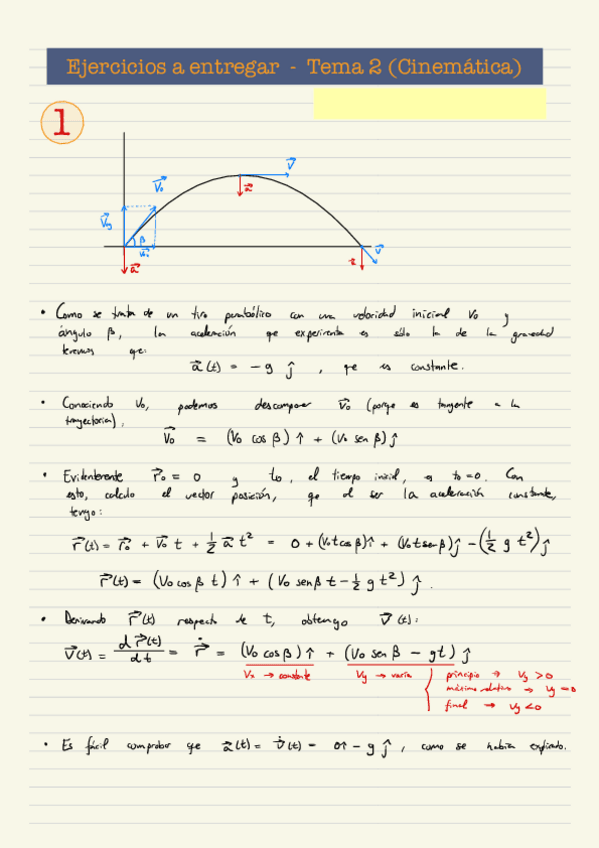 Ejercicios a entregar - Tema 2 (Cinemática)
1
V⃗
V⃗o
a⃗
V⃗y
β
V⃗o
a⃗
a⃗
v⃗
• Como se trata de un tiro parabólico con una velocidad inicial Vo y
ángulo β, la aceleración que experimenta es sólo la de la gravedad
tenemos que:
a⃗(t) = - g ĵ , que es constante.
• Conociendo Vo, podemos descomponer V⃗o (porque es tangente a la
trayectoria):
V⃗o = (Vo cos β) î + (Vo sen β) ĵ
• Evidentemente r⃗o = 0 y to, el tiempo inicial, es to=0. Con
esto, calculo el vector posición, que al ser la aceleración constante,
tengo:
r⃗(t) = r⃗o + V⃗o t + 1/2 a⃗ t² = 0 + (Vo t cos β) î + (Vo t sen β) ĵ - (1/2 g t²) ĵ
r⃗(t) = (Vo cos β t) î + (Vo sen β t - 1/2 g t²) ĵ .
• Derivando r⃗(t) respecto de t, obtengo V⃗(t):
V⃗(t) = d r⃗(t)/dt = ṙ⃗ = (Vo cos β) î + (Vo sen β - gt) ĵ
Vx → constante Vy → varía { principio → Vy > 0
máxima altura → Vy = 0
final → Vy < 0
• Es fácil comprobar que a⃗(t) = v̇⃗(t) = 0î - g ĵ , como se había explicado.